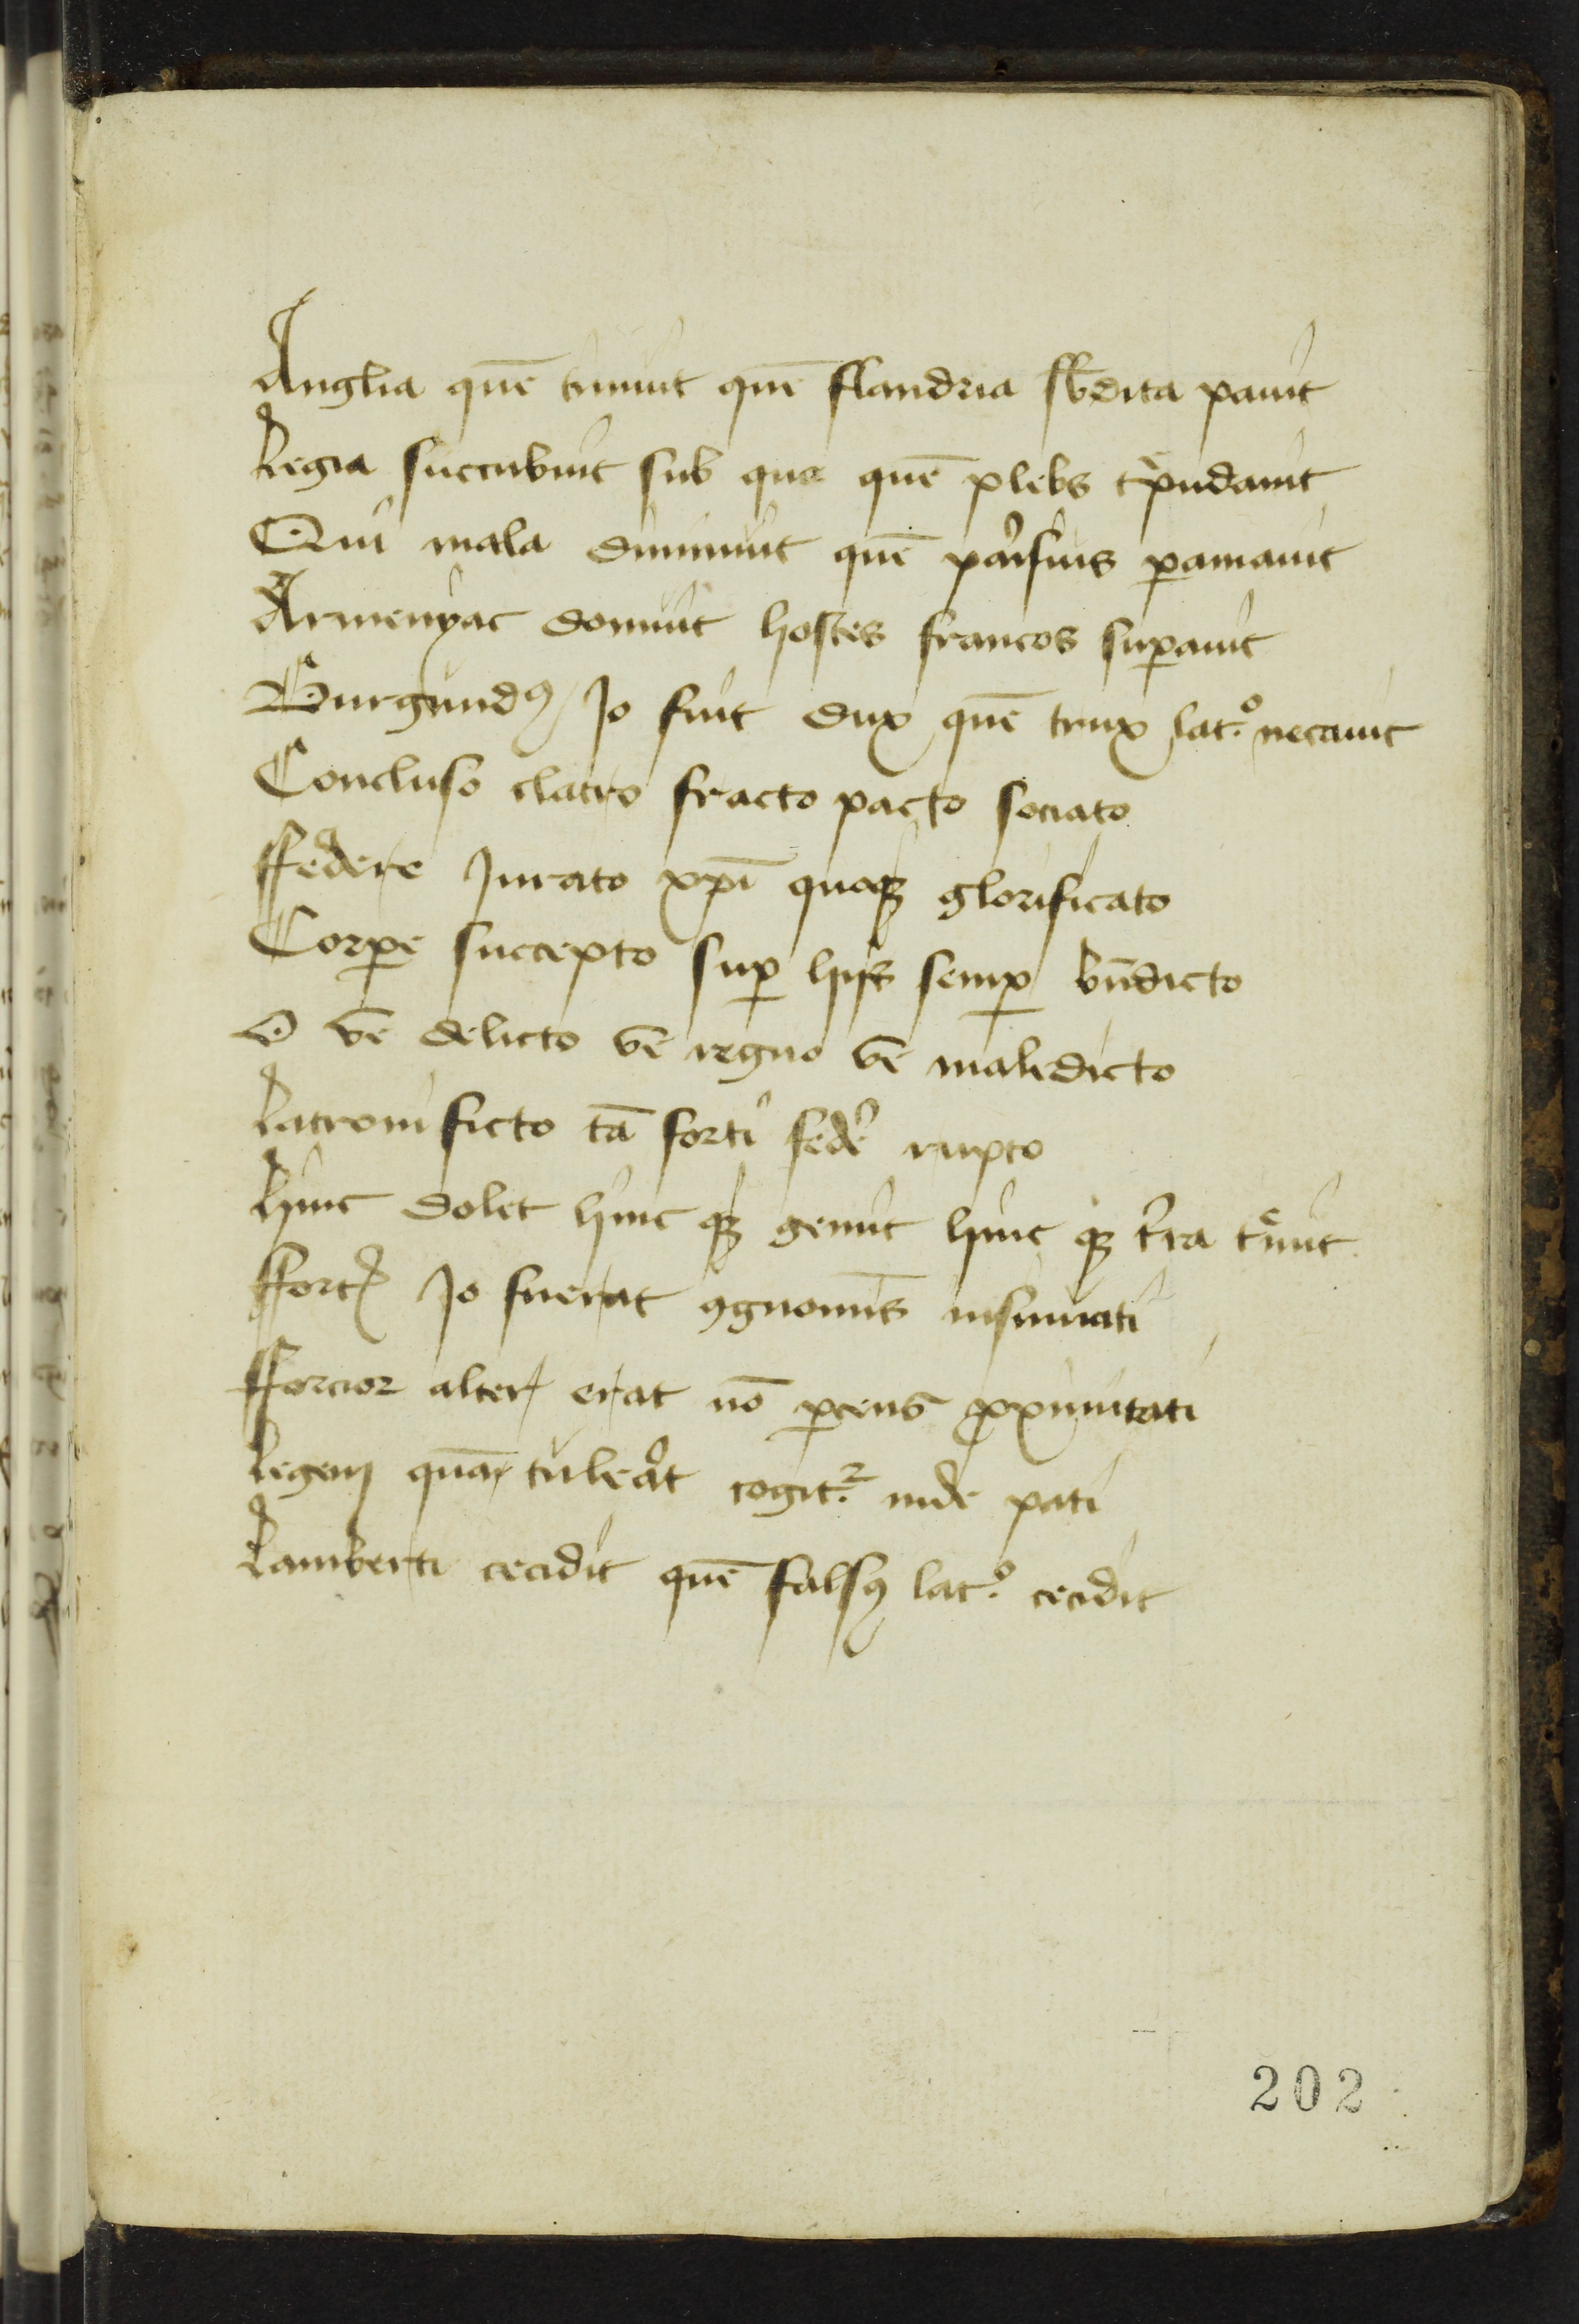 Anglia quē timuit quē flandria sb̄dita pauit
Legia succubuit sub quo quē plebs tͥpudauit
Qui mala dimmuit quē parisius ꝑamauit
Armenyac domuit hostes francos suꝑauit
Burgundꝰ Jo fuit dux quē trux latͦ necauit
Concluso clatro fracto pacto sociato
ffedere Jurato xp̄i quoqꝫ glorificato
Corꝑe succepto suꝑ hijs semꝑ bn̄dicto
O ve delicto ve regno ve maledicto
Latroni ficto tā forti fede͛ rupto
Hinc dolet hinc qꝫ gemit hinc qꝫ t͛ra tͤmit
ffort Jo fuerat ꝯgnomīs insinuati
fforcior alter erat nō ꝑcens ꝓximitati
Legem quā tulerat cogit᷑ inde pati
Lamberti cecidit quē falsꝰ latͦ cecidit
202